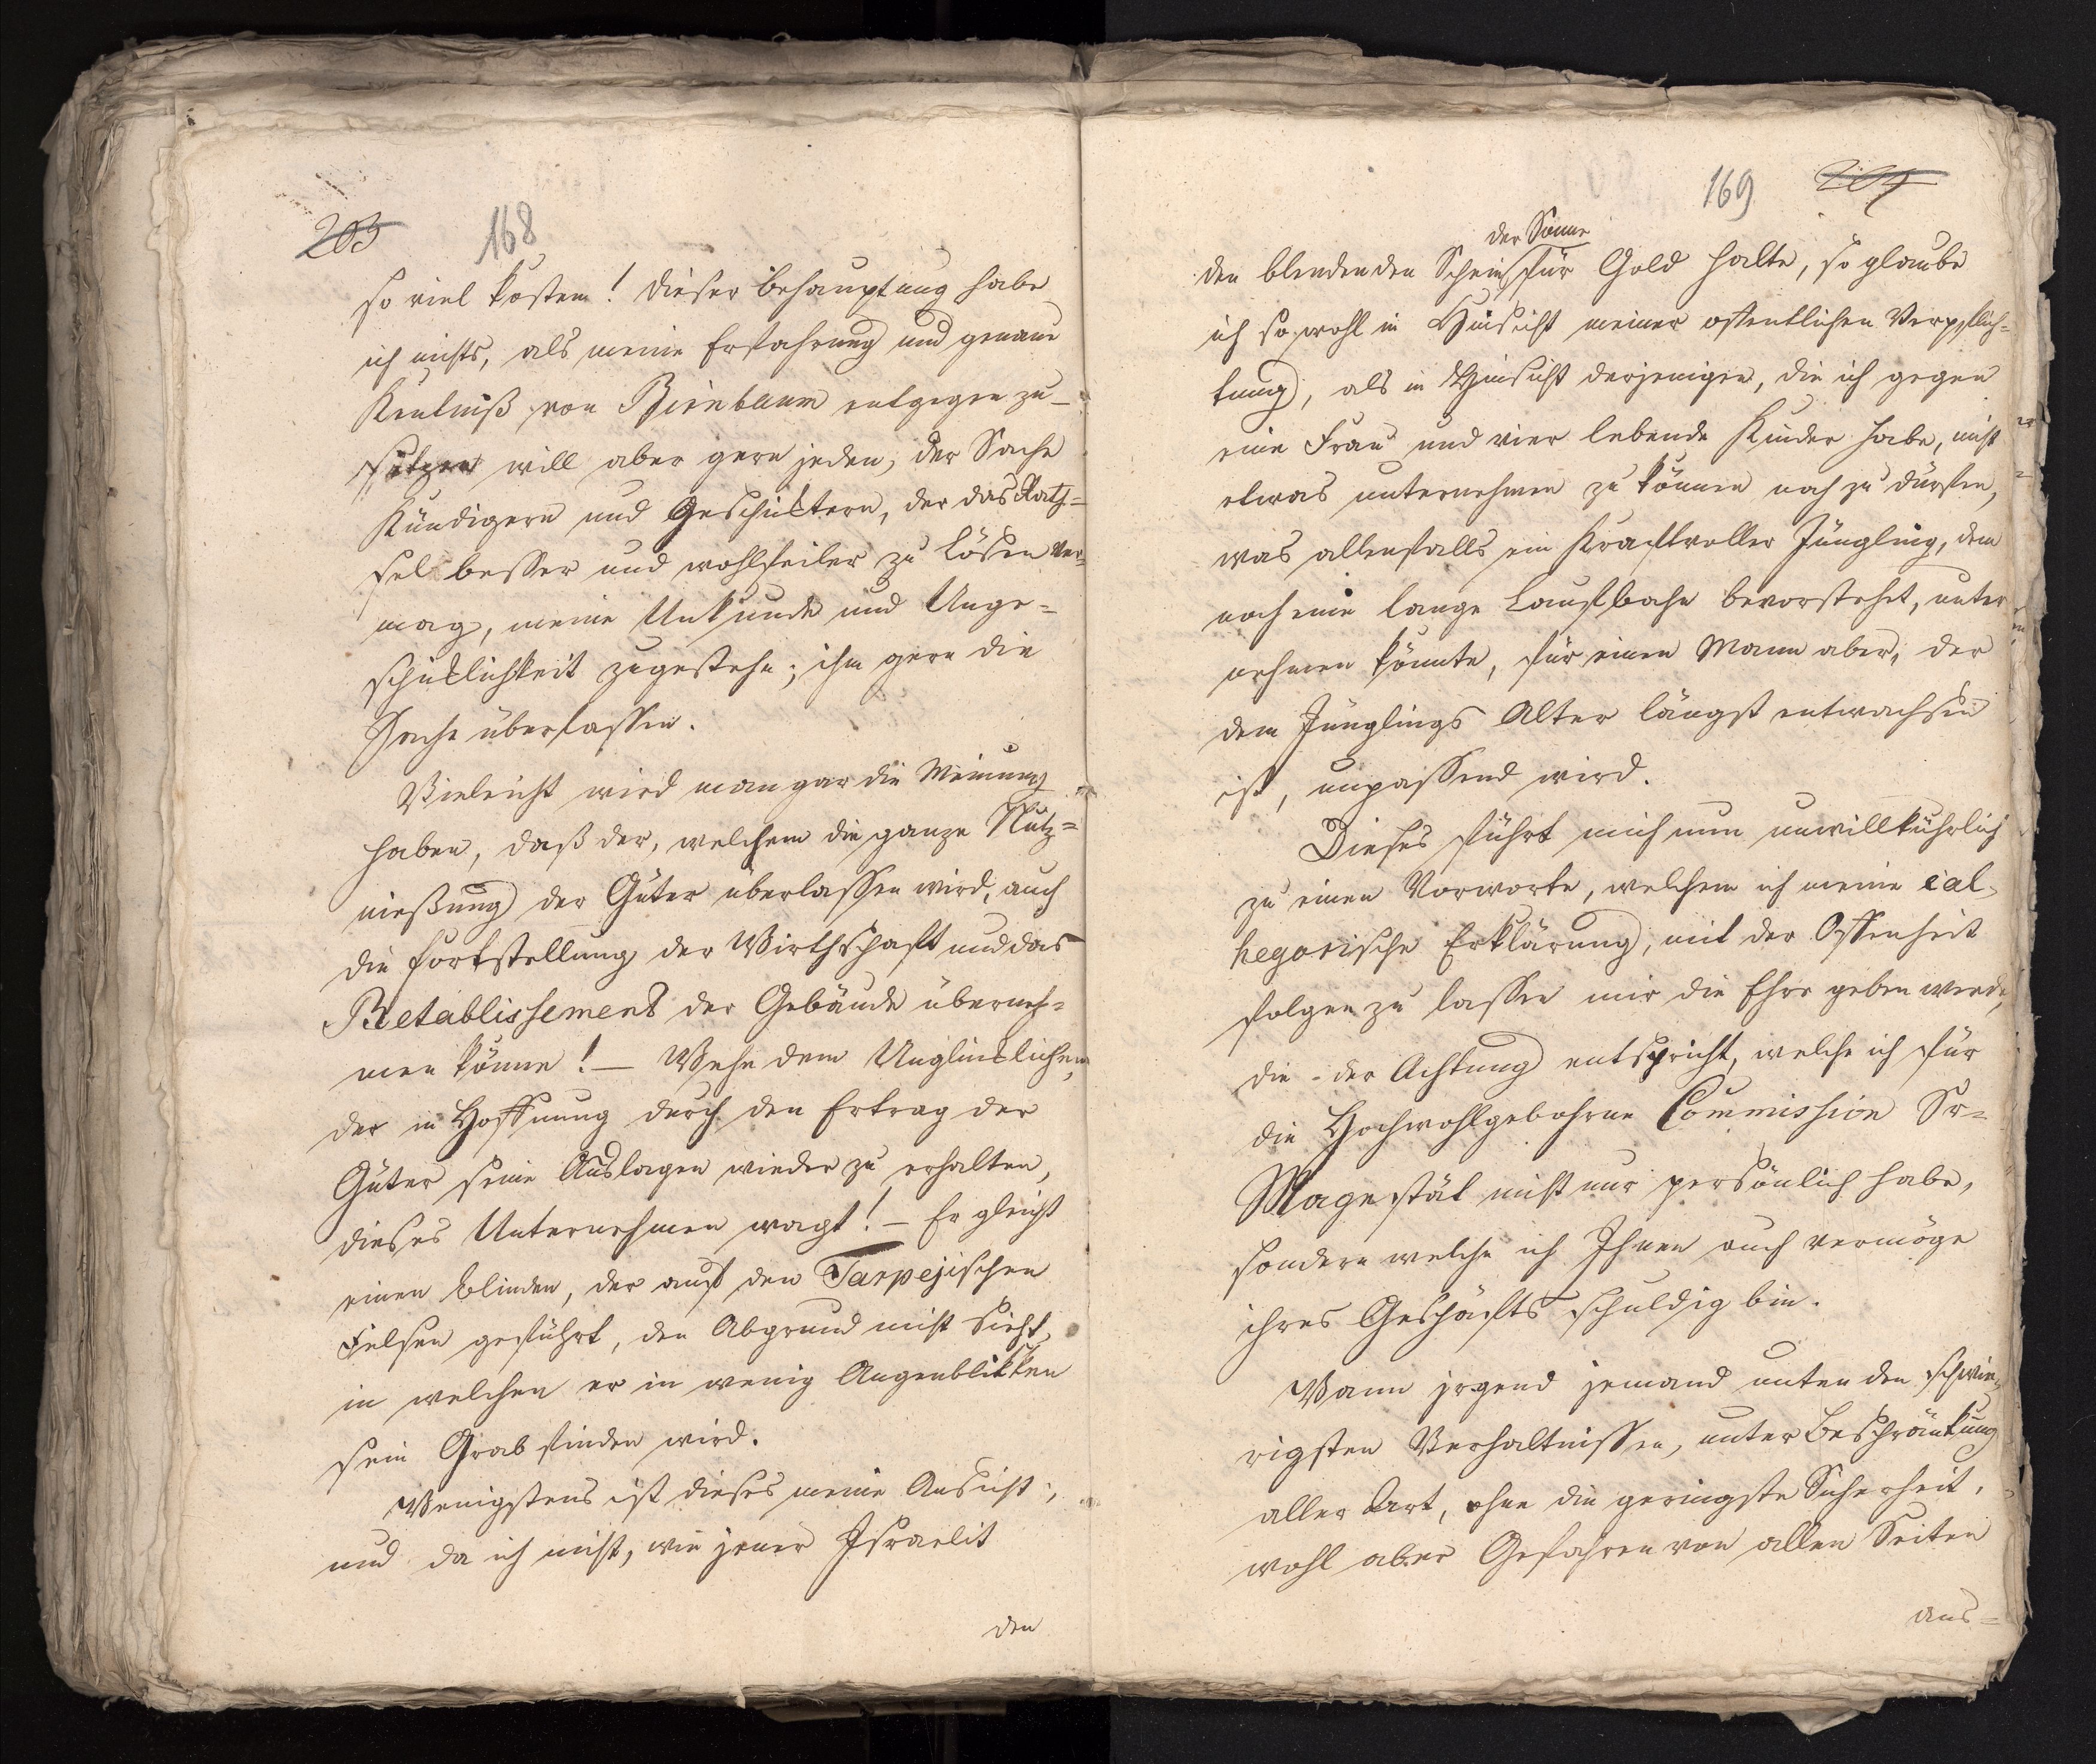 203 168
so viel kosten! dieser behauptung habe
ich nichts, als meine Erfahrung und genaue
Kentniß von Birnbaum entgegen zu-
setzen will aber gern jeden, der Sache
Kündigern und Geschiktern, der das Rätz=
sel besser und wohlfeiler zu lösen ver-
mag, meine Unkunde und Unge=
schiklichkeit zugestehn; ihm gern die
Sache überlassen.
Vieleicht wird man gar die Meinung
haben, daß der, welchem die ganze Nutz=
nießung der Güter überlassen wird, auch
die fortstellung der Wirthschaft und das
Retablissement der Gebäude überneh=
men könne! — Wehe dem Unglüklichen,
der in Hoffnung durch den Ertrag der
Güter seine Auslagen wieder zu erhalten,
dieses Unternehmen wagt! — Er gleicht
einen blinden, der auf den Tarpejischen
Felsen geführt, den Abgrund nicht sieht,
in welchen er in wenig Augenblikken
sein Grab finden wird.
Wenigstens ist dieses meine Ansicht;
und da ich nicht, wie jener Israelit
den
169 204
der Sonne
den blendenden Schein für Gold halte, so glaube
ich so wohl in Hinsicht meiner offentlichen Verpflich=
tung, als in Hinsicht derjenigen, die ich gegen
eine Frau und vier lebende Kinder habe, nicht
etwas unternehmen zu können noch zu dürfen,
was allenfalls ein Kraftvoller Jüngling, dem
noch eine lange Laufbahn bevorstehet, unter
nehmen könnte, für einen Mann aber, der
dem Jünglings Alter längst entwachsen
ist, unpassend wird.
Dieses führt mich nun unwillkührlich
zu einen Vorworte, welchem ich meine cat-
hegorische Erklärung, mit der Offenheit
folgen zu lassen mir die Ehre geben werde,
die - der Achtung entspricht, welche ich für
die Hochwohlgebohrne Commission Sr=
Magestät nicht nur persönlich habe,
sondern welche ich Ihnen auch vermöge
ihres Geschäfts schuldig bin.
Wann jrgend jemand unter den schwie-
rigsten Verhaltnissen, unter Beschränkung
aller Art, ohne die geringste Sicherheit,
wohl aber Gefahren von allen Seiten
aus=